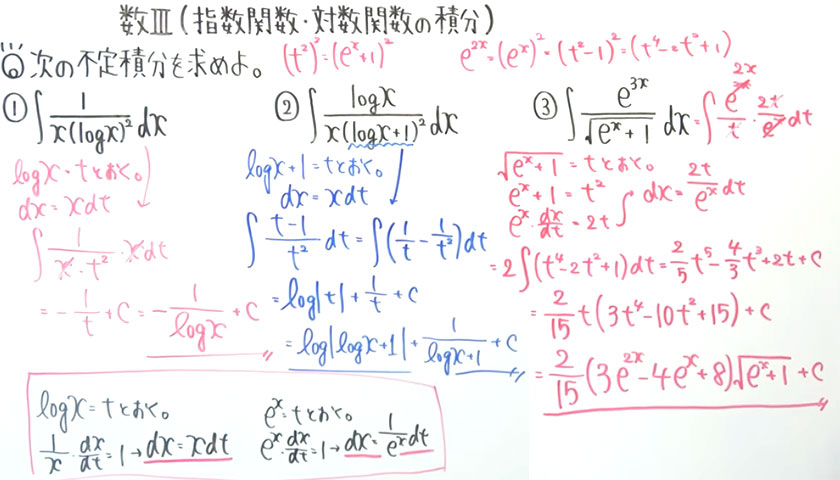 数Ⅲ(指数関数・対数関数の積分)
次の不定積分を求めよ。
(t²)²=(eˣ+1)²
e²ˣ=(eˣ)²=(t²-1)²=(t⁴-2t²+1)
① ∫ 1/(x(logx)²) dx
logx=tとおく。
dx=xdt
∫ 1/(x・t²)・xdt
=-1/t+C=-1/logx+C
② ∫ logx/(x(logx+1)²) dx
logx+1=tとおく。
dx=xdt
∫ (t-1)/t² dt=∫(1/t-1/t²)dt
=log|t|+1/t+C
=log|logx+1|+1/(logx+1)+C
③ ∫ e³ˣ/√(eˣ+1) dx=∫ e³ˣ/t・2t/eˣ dt
2x
√(eˣ+1)=tとおく。
eˣ+1=t²
eˣ・dx/dt=2t
dx=2t/eˣ dt
=2∫(t⁴-2t²+1)dt=2/5t⁵-4/3t³+2t+C
=2/15t(3t⁴-10t²+15)+C
=2/15(3e²ˣ-4eˣ+8)√(eˣ+1)+C
logx=tとおく。
1/x・dx/dt=1→dx=xdt
eˣ=tとおく。
eˣ・dx/dt=1→dx=1/eˣ dt